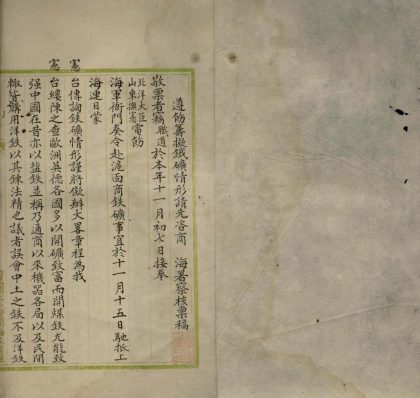 遵飭籌擬鐵礦情形請先咨商　海署察核稟稿
敬稟者竊職道於本年十一月初七日接奉
北洋大臣
山東撫憲電飭
海軍衙門奏令赴滬面商鉄礦事宜於十一月十五日馳抵上
海連日蒙
憲台傳詢鉄礦情形謹將儗辦大畧章程為我
憲台縷陳之查歐洲英德各國多以開礦致富而開煤鉄尤能致
强中國在昔亦以盐鉄並稱乃通商以來機器各局以及民間
輙皆購用洋鉄以其鍊法精也議者誤會中土之鉄不及洋鉄